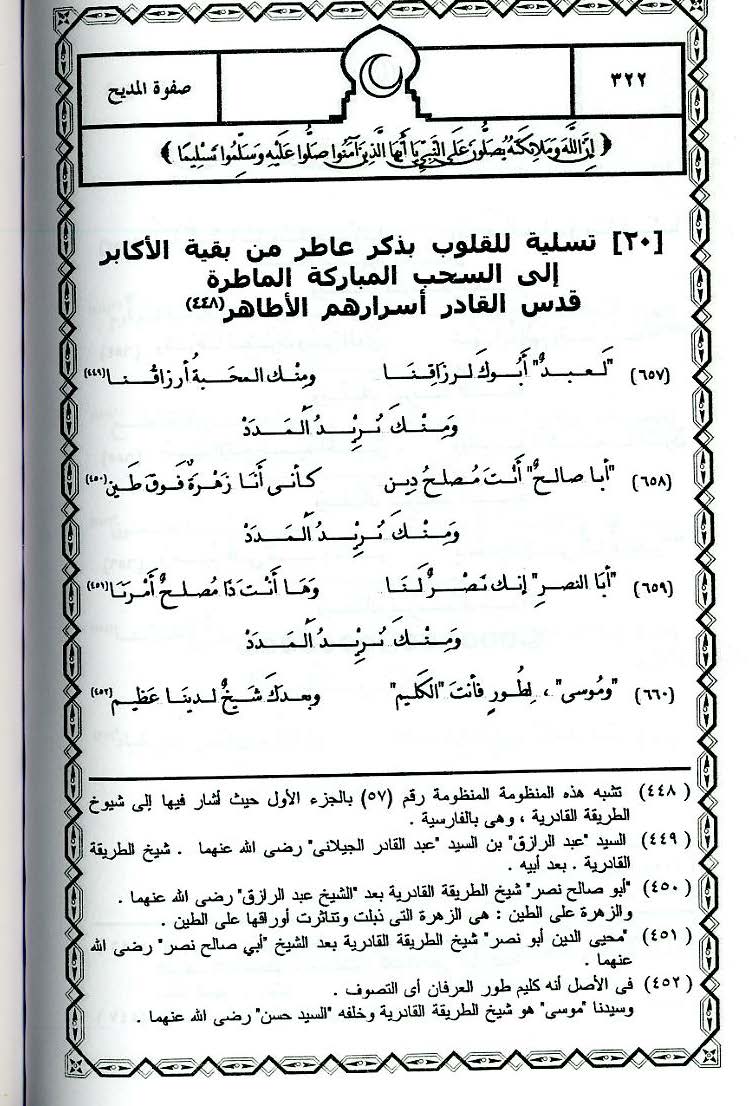 ٣٢٢
صفوة المديح
﴿ إِنَّ اللَّهَ وَمَلَائِكَتَهُ يُصَلُّونَ عَلَى النَّبِيِّ يَا أَيُّهَا الَّذِينَ آمَنُوا صَلُّوا عَلَيْهِ وَسَلِّمُوا تَسْلِيمًا ﴾
[٢٠] تسلية للقلوب بذكر عاطر من بقية الأكابر
إلى السحب المباركة الماطرة
قدس القادر أسرارهم الأطاهر(٤٤٨)
(٦٥٧) "لَعبدٌ" أَبُوكَ لرزاقِنَا ومِنْك المحَبةُ أرزاقُنا(٤٤٩)
وَمِنْكَ نُرِيْدُ الْمَدَدْ
(٦٥٨) "أبا صالحٌ" أَنْتَ مُصلحُ دِين كأنى أَنَا زَهْرَةٌ فَوقَ طَين(٤٥٠)
وَمِنْكَ نُرِيْدُ الْمَدَدْ
(٦٥٩) "أبَا النصرِ" إنك نَصْرٌ لَنَا وَهَا أَنْتَ ذَا مُصلحٌ أَمْرَنَا(٤٥١)
وَمِنْكَ نُرِيْدُ الْمَدَدْ
(٦٦٠) "ومُوسى" ، لِطُورٍ فأنتَ "الكليم" وبعدكَ شَيخٌ لدينَا عَظيم(٤٥٢)
(٤٤٨) تشبه هذه المنظومة المنظومة رقم (٥٧) بالجزء الأول حيث أشار فيها إلى شيوخ
الطريقة القادرية ، وهى بالفارسية .
(٤٤٩) السيد "عبد الرازق" بن السيد "عبد القادر الجيلانى" رضى الله عنهما . شيخ الطريقة
القادرية . بعد أبيه .
(٤٥٠) "أبو صالح نصر" شيخ الطريقة القادرية بعد "الشيخ عبد الرازق" رضى الله عنهما .
والزهرة على الطين : هى الزهرة التى ذبلت وتناثرت أوراقها على الطين .
(٤٥١) "محيى الدين أبو نصر" شيخ الطريقة القادرية بعد الشيخ "أبي صالح نصر" رضى الله
عنهما .
(٤٥٢) فى الأصل أنه كليم طور العرفان أى التصوف .
وسيدنا "موسى" هو شيخ الطريقة القادرية وخلفه "السيد حسن" رضى الله عنهما .